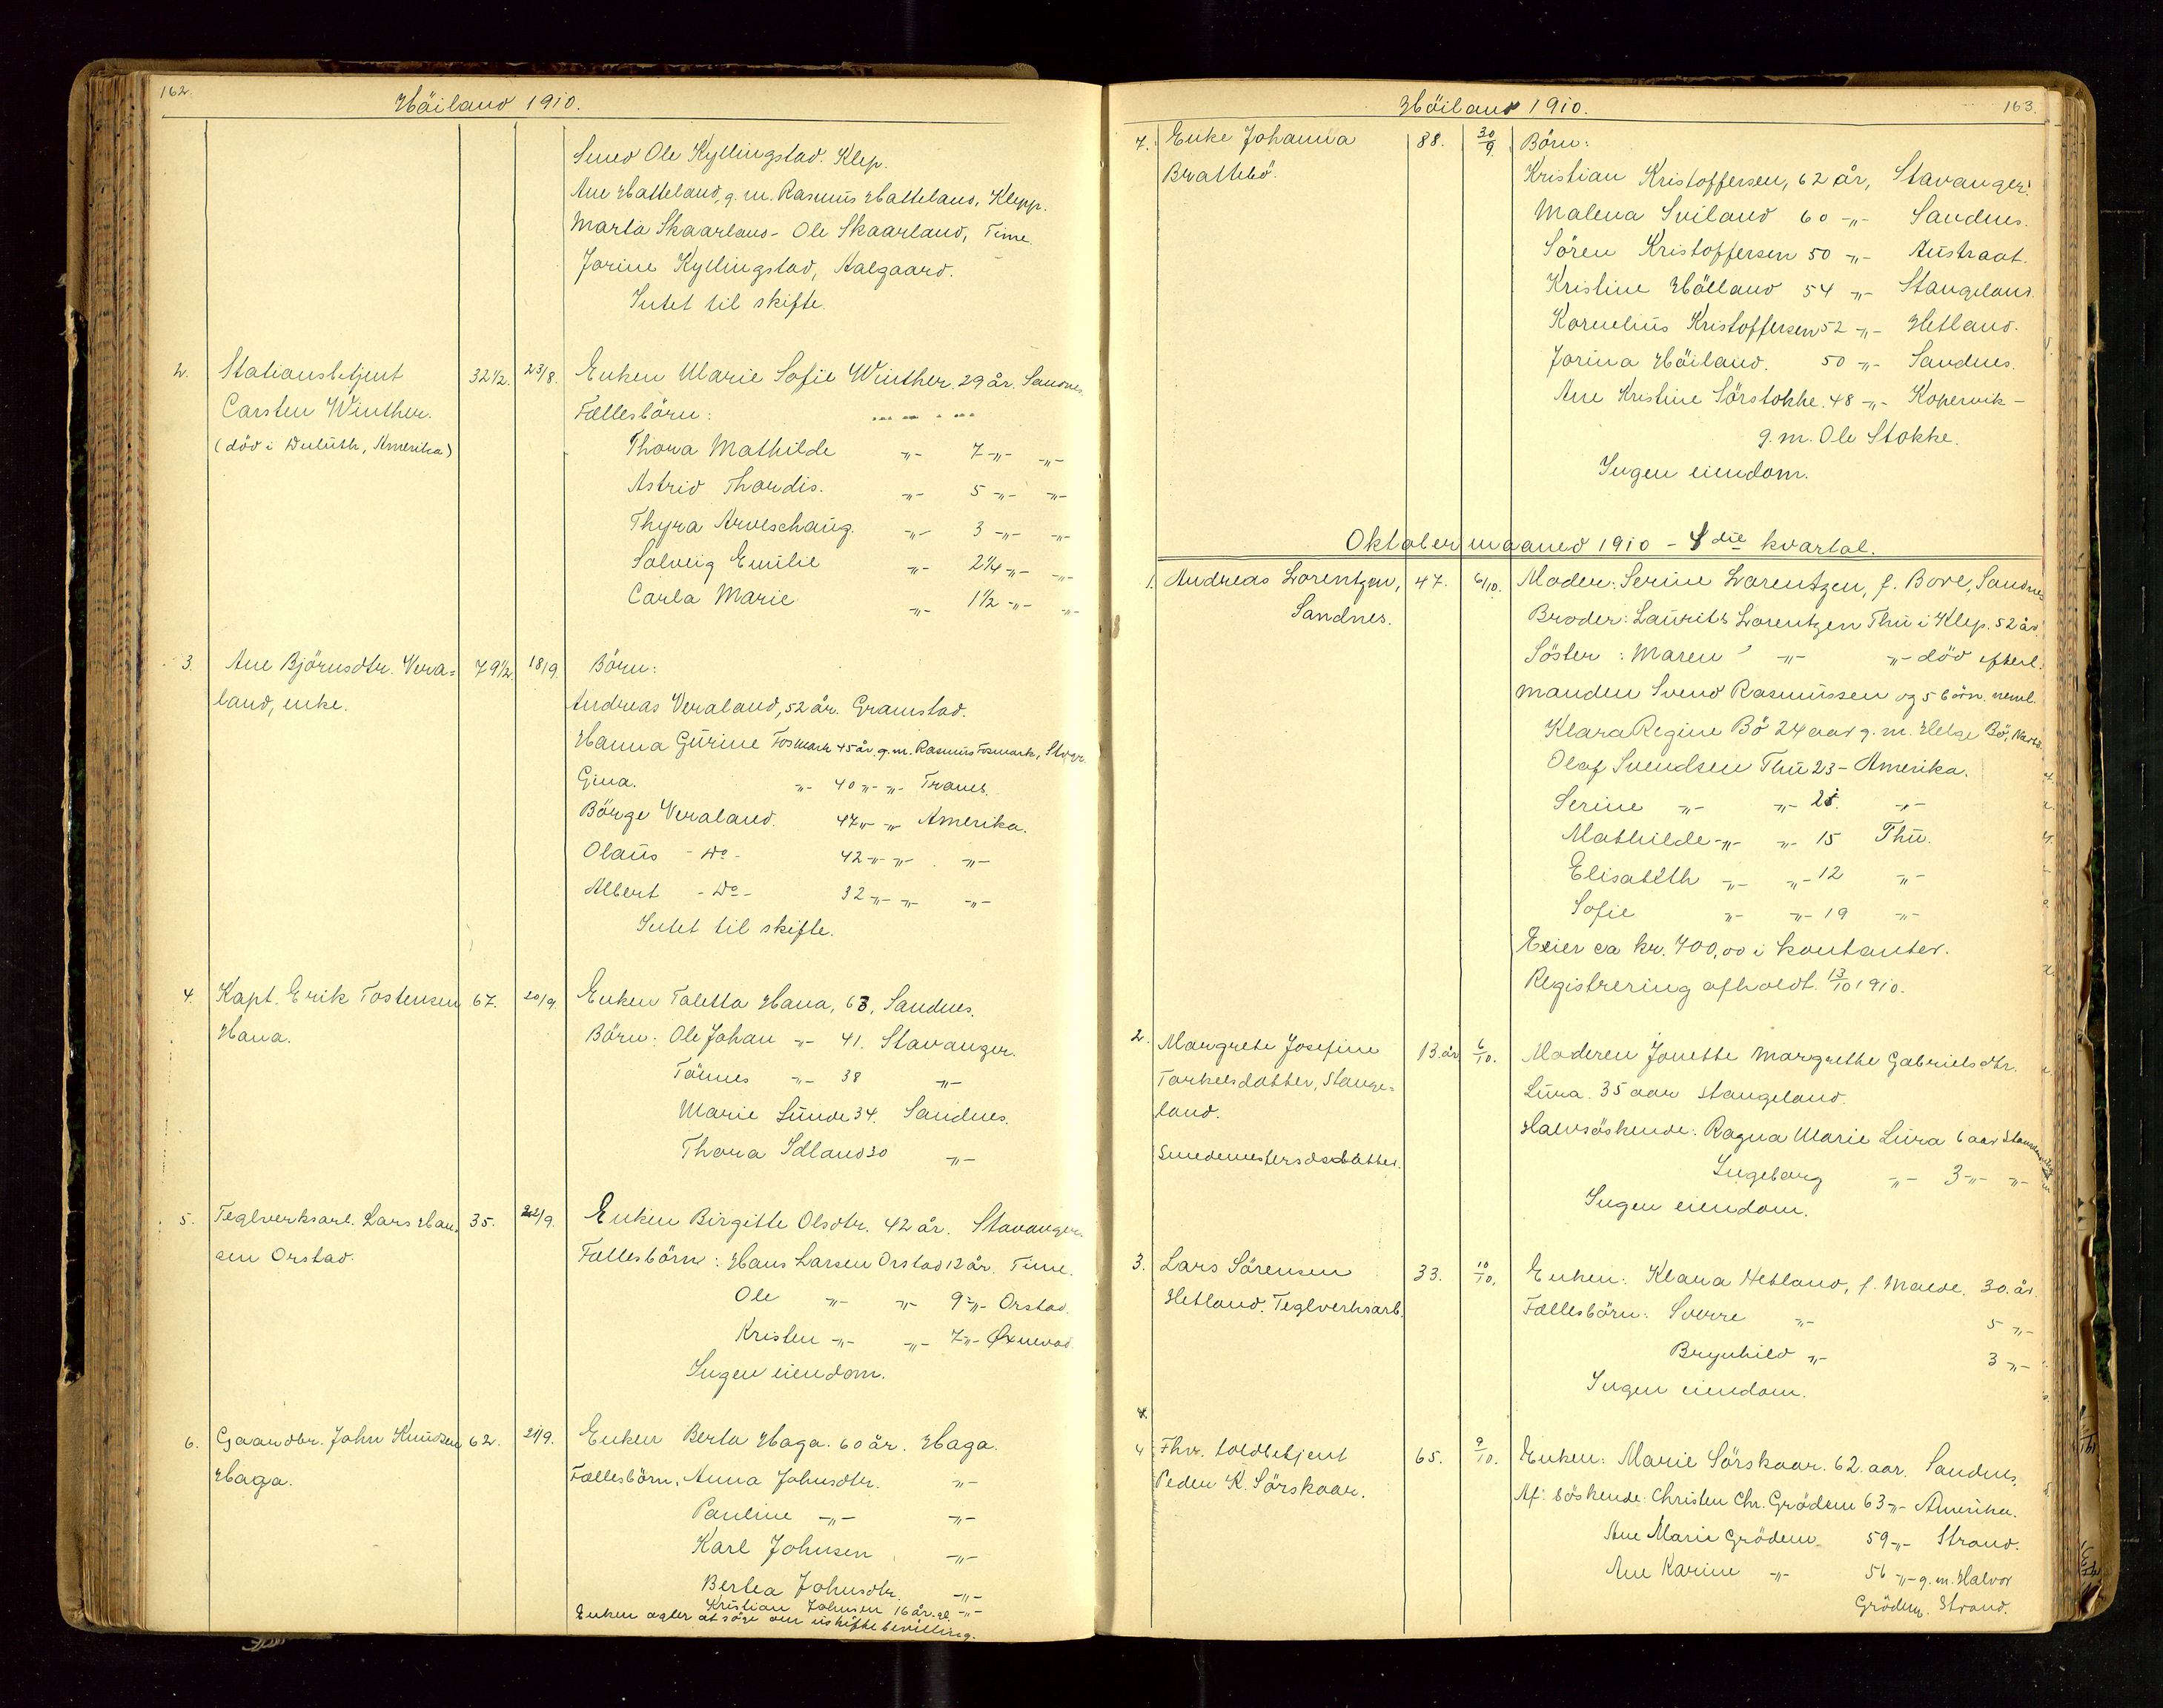 162.
Höiland 1910.
Svend Ole Kyllingstad. Klep.
Ane Hatteland, g. m. Rasmus Hatteland, Klepp.
Marta Skaarland - Ole Skaarland, Time.
Jorine Kyllingstad, Aalgaard.
Intet til skifte.
2. Stationsbetjent 32 1/2. 23/8. Enken Marie Sofie Winther. 29 år. Sandnes.
Carsten Winther. Fællesbörn:
(död i Duluth, Amerika) Thora Mathilde -"- 7 -"- -"-
Astrid Thordis. -"- 5 -"- -"-
Thyra -"- 3 -"- -"-
Solveig Emilie -"- 2 1/4 -"- -"-
Carla Marie -"- 1 1/2 -"- -"-
3. Ane Björnsdtr. Vera= 79 1/2. 18/9. Börn:
land, enke. Andreas Veraland, 52 år. Gramstad.
Hanna Gurine Fosmark 45 år g. m. Rasmus Fosmark, Stvgr.
Gina. -"- 40 -"- -"- Traneb.
Börge Veraland. 47 -"- -"- Amerika.
Olaus - Do - 42 -"- -"- -"-
Albert - Do - 32 -"- -"- -"-
Intet til skifte.
4. Kapt. Erik Tostensen 67. 20/9. Enken Taletta Hana, 63, Sandnes.
Hana. Börn: Ole Johan -"- 41. Stavanger.
Tönnes -"- 38 -"-
Marie Lunde 34. Sandnes.
Thora Idland 30 -"-
5. Teglverksarb. Lars Han= 35. 22/9. Enken Birgitte Olsdtr. 42 år. Stavanger.
sen Orstad. Fællesbörn: Hans Larsen Orstad 12 år. Time.
Ole -"- -"- 9 -"- Orstad.
Kristen -"- -"- 7 -"- Øxnevad.
Ingen eiendom.
6. Gaardbr. John Knudsen 62. 21/9. Enken Berta Haga. 60 år. Haga.
Haga. Fællesbörn, Anna Johnsdtr. -"-
Pauline -"- -"-
Karl Johnsen -"-
Bertea Johnsdtr. -"-
Kristian Johnsen 16 år. gl. -"-
Enken agter at söge om uskiftebevilling.
Höiland 1910.
163.
7. Enke Johanna 88. 30/9. Börn:
Brattebö. Kristian Kristoffersen, 62 år, Stavanger.
Malena Sviland 60 -"- Sandnes.
Sören Kristoffersen 50 -"- Austraat.
Kristine Hölland 54 -"- Stangeland.
Kornelius Kristoffersen 52 -"- Hetland.
Jorina Höiland. 50 -"- Sandnes.
Ane Kristine Sörstokke. 48 -"- Kopervik -
g. m. Ole Stokke.
Ingen eiendom.
Oktober maaned 1910 - 4die kvartal.
1. Andreas Lorentzen, 47. 6/10. Moder: Serine Lorentzen, f. Bore, Sandnes
Sandnes. Broder: Laurits Lorentzen Thu i Klep. 52 år.
Söster: Maren -"- -"- död efterl.
manden Svend Rasmussen og 5 börn. neml.
Klara Regine Bö 24 aar g. m. Helge Bö,
Olaf Svendsen Thu 23 - Amerika.
Serine -"- -"- 21. -"-
Mathilde -"- -"- 15 Thu.
Elisabeth -"- -"- 12 -"-
Sofie -"- -"- 19 -"-
Eeier ca kr. 700,00 i kontanter.
Registrering afholdt 13/10 1910.
2. Margrete Josefine 13. år 6/10. Moderen Jonette Margrethe Gabrielsdtr.
Torkelsdatter, Stange= Lura. 35 aar Stangeland.
land. Halvsöskende: Ragna Marie Lura 6 aar Stangeland
Smedemestersdatter. Ingeborg -"- 3 -"- -"-
Ingen eiendom.
3. Lars Sörensen 33. 10/10. Enken: Klara Hetland, f. Malde. 30. år.
Hetland. Teglverksarb. Fællesbörn: Sverre -"- 5 -"-
Brynhild -"- 3 -"-
Ingen eiendom.
4.
4 Fhv. toldbetjent 65. 9/10. Enken: Marie Sörskaar. 62. aar. Sandnes.
Peder K. Sörskaar. Af: söskende: Christen Chr. Grödem 63 -"- Amerika.
Ane Marie Grödem 59 -"- Strand.
Ane Karine -"- 56 -"- g. m. Halvor
Grödem. Strand.